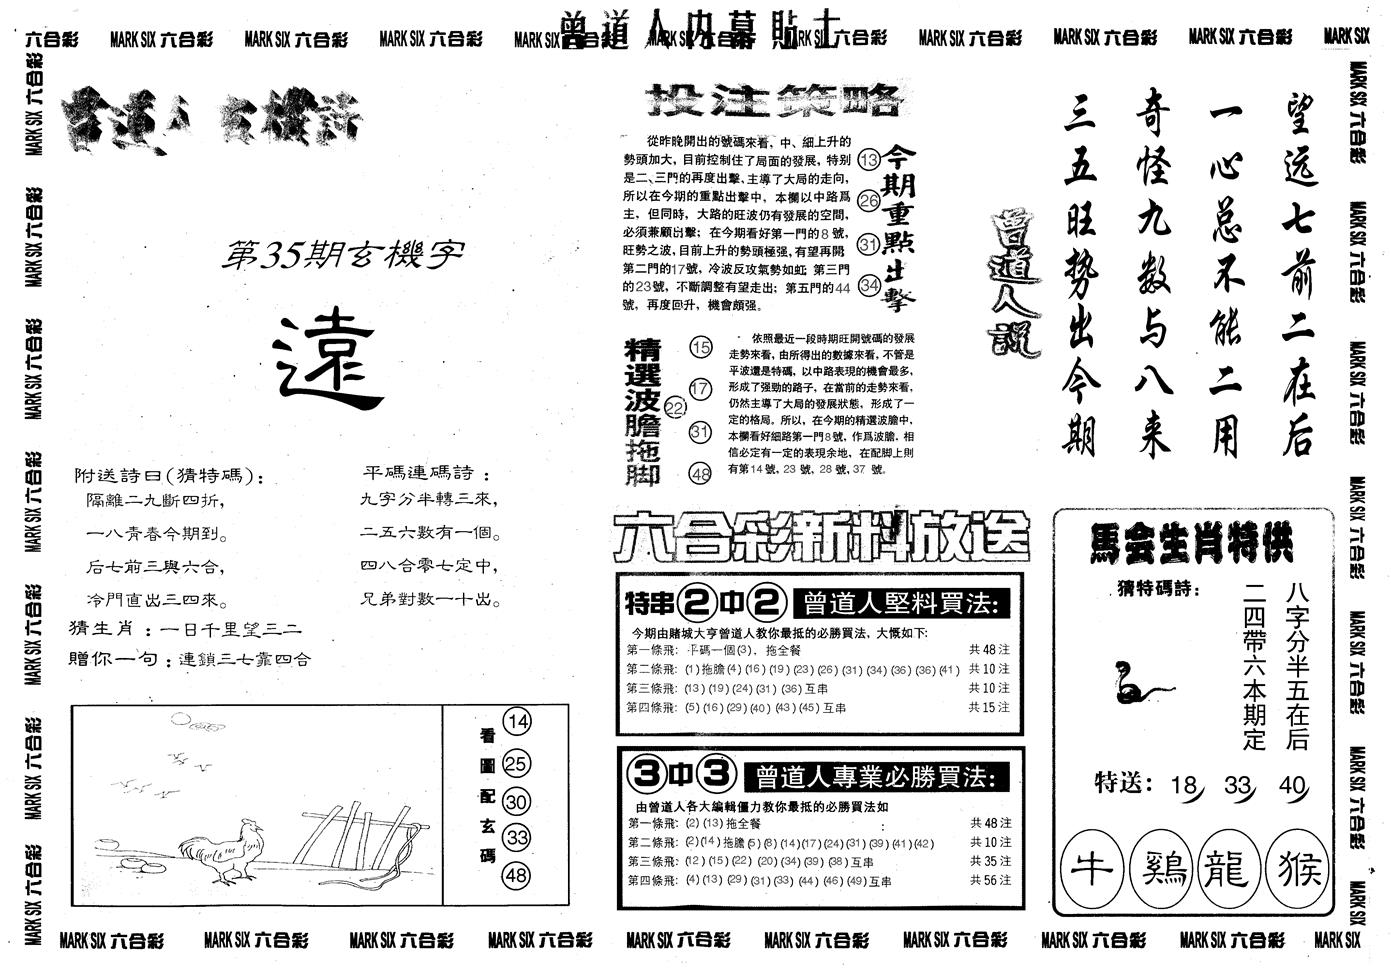 曾道人内幕貼士
六合彩 MARK SIX 六合彩 MARK SIX 六合彩 MARK SIX 六合彩 MARK SIX 六合彩 MARK SIX 六合彩 MARK SIX 六合彩 MARK SIX 六合彩 MARK SIX 六合彩 MARK SIX 六合彩 MARK SIX
曾道人 玄機詩
第35期玄機字
遠
附送詩日(猜特碼):
隔離二九斷四折,
一八青春今期到。
后七前三與六合,
冷門直出三四來。
猜生肖:一日千里望三二
贈你一句:連鎖三七靠四合
平碼連碼詩:
九字分半轉三來,
二五六數有一個。
四八合零七定中,
兄弟對數一十出。
看圖配玄碼
14
25
30
33
48
投注策略
從昨晚開出的號碼來看,中、細上升的
勢頭加大,目前控制住了局面的發展,特别
是二、三門的再度出擊,主導了大局的走向,
所以在今期的重點出擊中,本欄以中路爲
主,但同時,大路的旺波仍有發展的空間,
必須兼顧出擊;在今期看好第一門的8號,
旺勢之波,目前上升的勢頭極强,有望再開
第二門的17號,冷波反攻氣勢如虹 第三門
的23號,不斷調整有望走出;第五門的44
號,再度回升,機會頗强。
13
26
31
34
今期重點出擊
精選波膽拖脚
15
17
22
31
48
依照最近一段時期旺開號碼的發展
走勢來看,由所得出的數據來看,不管是
平波還是特碼,以中路表現的機會最多,
形成了强勁的路子,在當前的走勢來看,
仍然主導了大局的發展狀態,形成了一
定的格局。所以,在今期的精選波膽中,
本欄看好細路第一門8號,作爲波膽,相
信必定有一定的表現余地,在配脚上則
有第14號,23號,28號,37號。
六合彩新料放送
特串2中2 曾道人堅料買法:
今期由賭城大亨曾道人教你最抵的必勝買法,大慨如下:
第一條飛: 平碼一個(3)、拖全餐 共48注
第二條飛: (1)拖膽(4)(16)(19)(23)(26)(31)(34)(36)(36)(41) 共10注
第三條飛: (13)(19)(24)(31)(36)互串 共10注
第四條飛: (5)(16)(29)(40)(43)(45)互串 共15注
3中3 曾道人專業必勝買法:
由曾道人各大編輯僵力教你最抵的必勝買法如
第一條飛: (2)(13)拖全餐 共48注
第二條飛: (2)(14)拖膽(5)(8)(14)(17)(24)(31)(39)(41)(42) 共10注
第三條飛: (12)(15)(22)(20)(34)(39)(38)互串 共35注
第四條飛: (4)(13)(29)(31)(33)(44)(46)(49)互串 共56注
曾道人説
望远七前二在后
一心总不能二用
奇怪九数与八来
三五旺势出今期
馬会生肖特供
猜特碼詩:
八字分半五在后
二四帶六本期定
特送: 18, 33, 40,
牛 鷄 龍 猴
MARK SIX 六合彩 MARK SIX 六合彩 MARK SIX 六合彩 MARK SIX 六合彩 MARK SIX 六合彩 MARK SIX 六合彩 MARK SIX 六合彩 MARK SIX 六合彩 MARK SIX 六合彩 MARK SIX